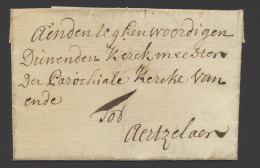 Aenden teghenwoordigen
Dienenden Kerckmeester
der Parochiale Kercke van
ende
Tot
Aertzelaer